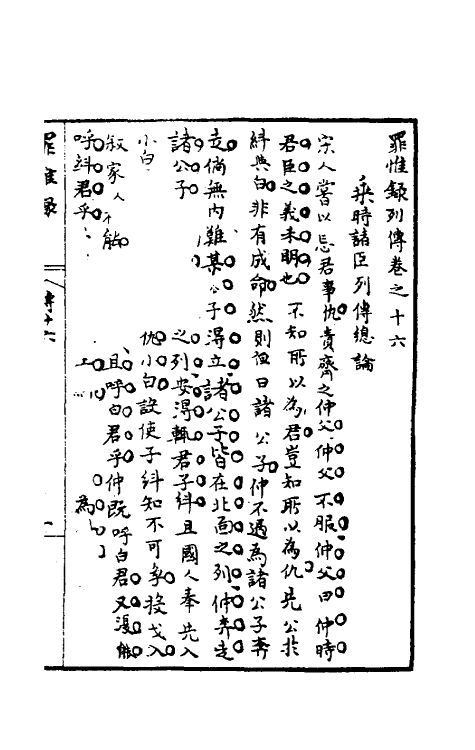 罪惟錄列傳卷之十六
乘時諸臣列傳總論
宋人嘗以忘君事仇責齊之仲父仲父不服仲父曰仲時
君臣之義未明也不知所以為君豈知所以為仇先公於
糾與白非有成命然則但曰諸公子仲不過為諸公子奔
走倘無內難某公子得立諸公子皆在北面之列仲奔走
諸公子之列安得輒君子糾且國人奉先入
小白仇小白設使子糾知不可爭投戈入
叙家人不能且呼白君乎仲既呼白君又漫
呼糾君乎為
罪惟錄
傳十六